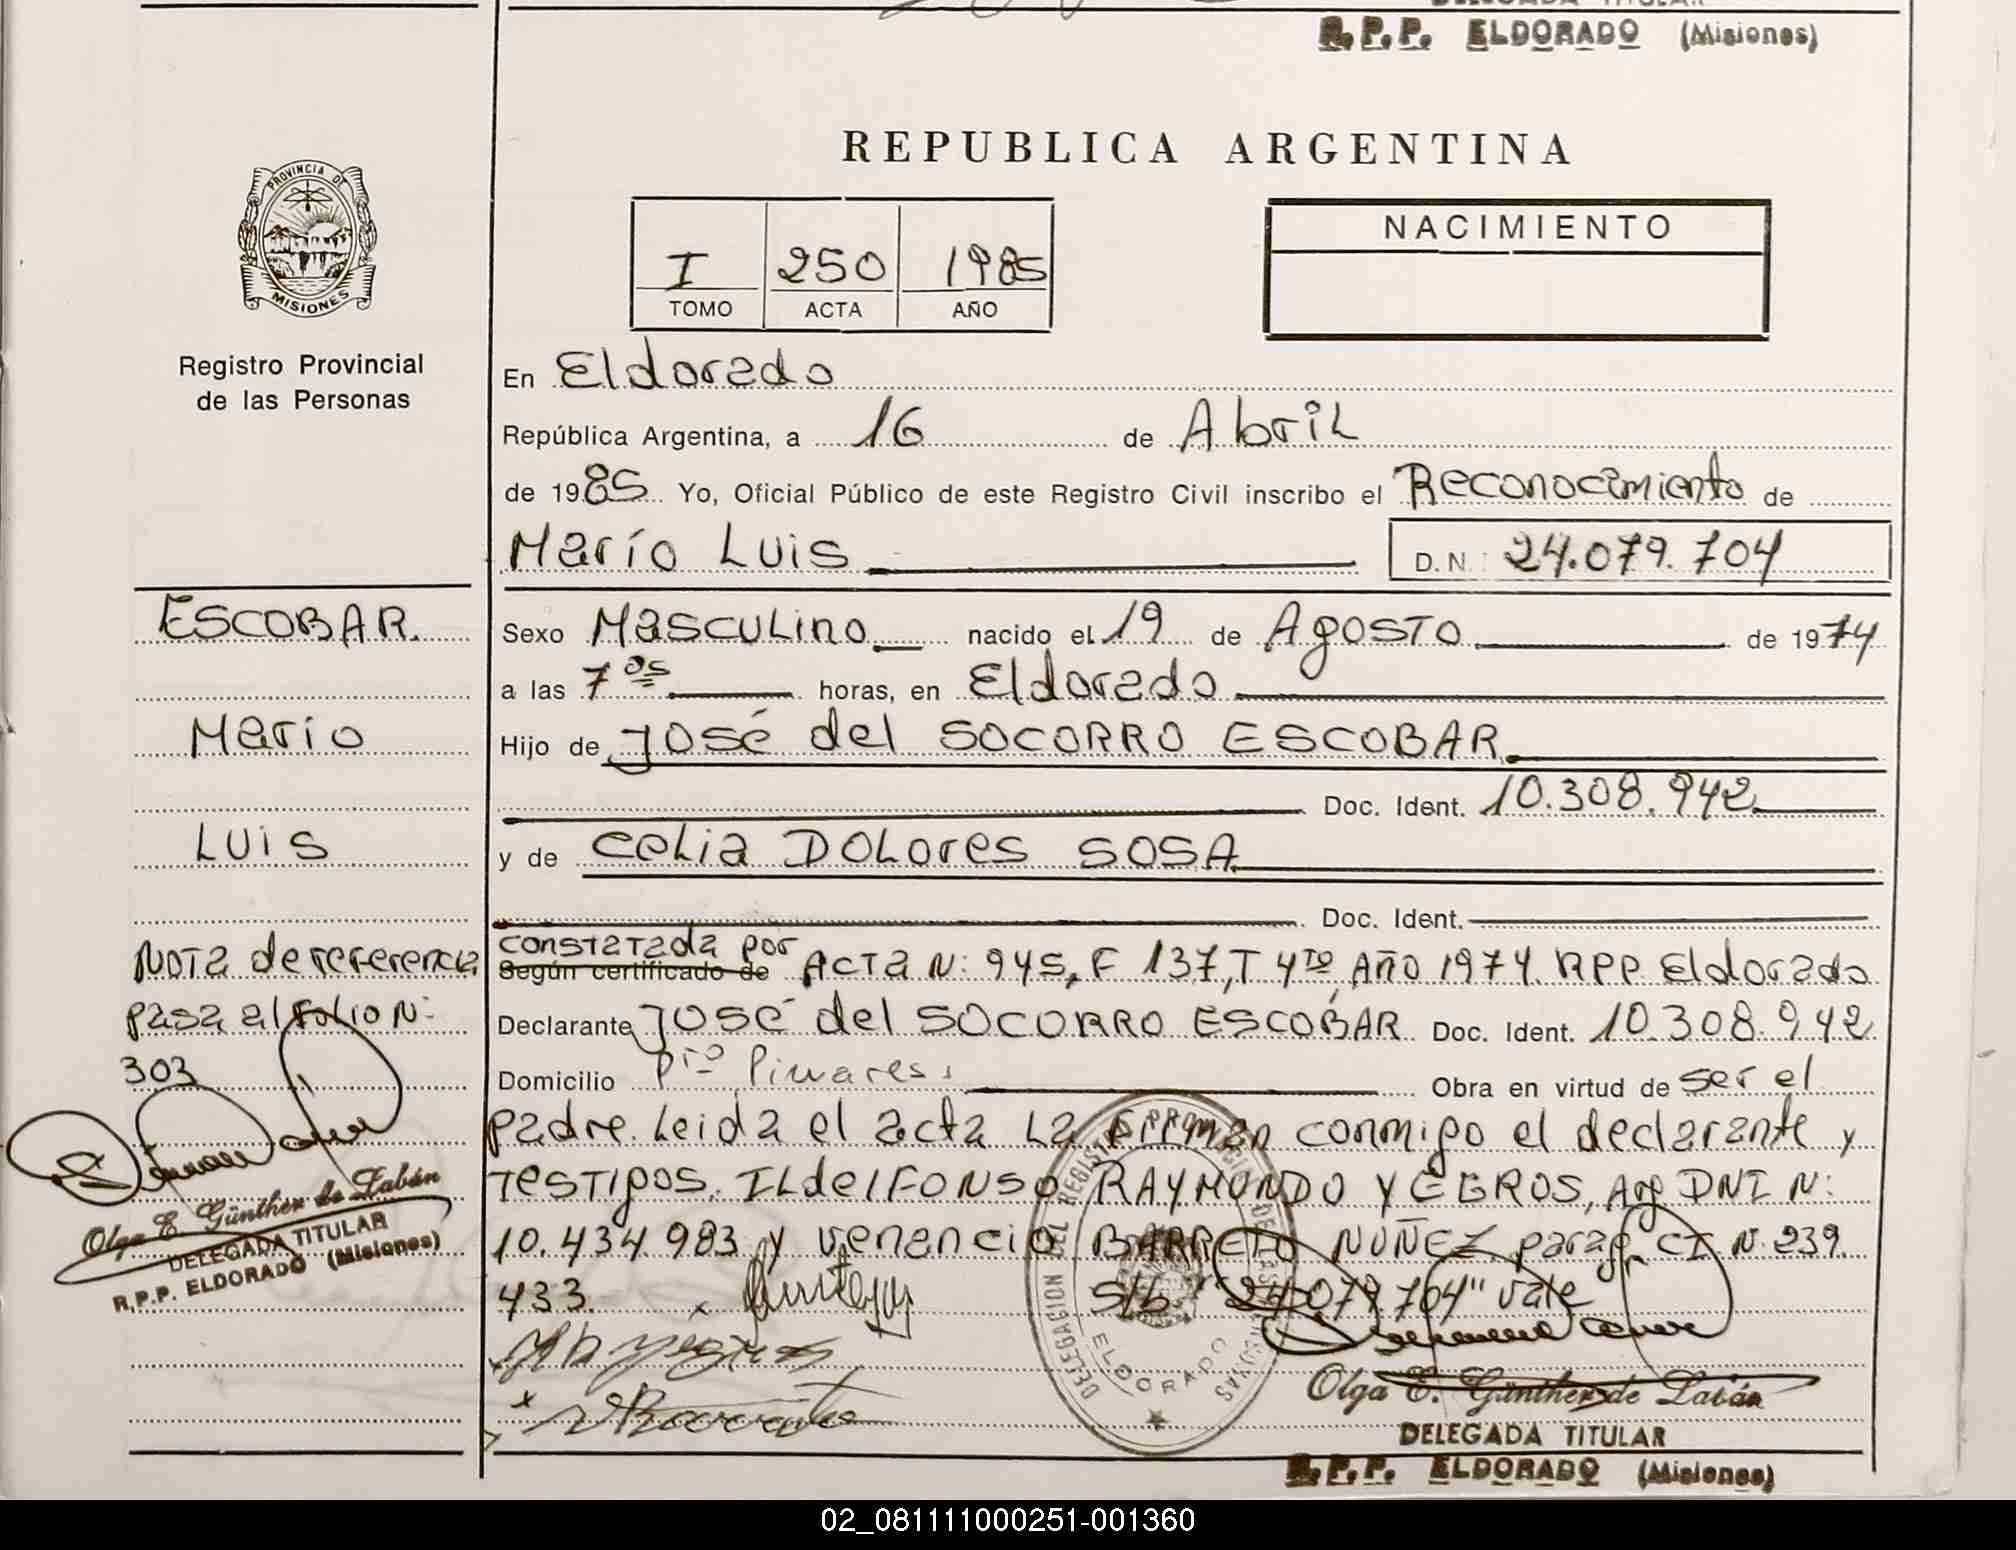 R.P.P. ELDORADO (Misiones)
REPUBLICA ARGENTINA
PROVINCIA DE
MISIONES
Registro Provincial
de las Personas
I 250 1985
TOMO ACTA AÑO
NACIMIENTO
En Eldorado
República Argentina, a 16 de Abril
de 1985 Yo, Oficial Público de este Registro Civil inscribo el Reconocimiento de
Mario Luis D.N.: 24.079.704
ESCOBAR.
Mario
Luis
Nota de referencia
pasa al Folio N:
303
Olga E. Günther de Labán
DELEGADA TITULAR
R.P.P. ELDORADO (Misiones)
Sexo Masculino nacido el 19 de Agosto de 1974
a las 7 os horas, en Eldorado
Hijo de José del SOCORRO ESCOBAR
Doc. Ident. 10.308.942
y de Celia DOLores SOSA
Doc. Ident.
constatada por
Según certificado de Acta N: 945, F 137, T 4to Año 1974. RPP. Eldorado
Declarante José del SOCORRO ESCOBAR Doc. Ident. 10.308.942
Domicilio Pto Pinares. Obra en virtud de ser el
padre. Leida el acta La Firman conmigo el declarante y
Testigos. ILdelFONSO RAYMUNDO YEGROS, Arg DNI N:
10.434.983 y venencio BARRETO NUÑEZ parag. CI N: 239.
433. S/b. "24.079.704" vale
DELEGACION DEL REGISTRO PROVINCIAL DE LAS PERSONAS
ELDORADO
Olga E. Günther de Labán
DELEGADA TITULAR
R.P.P. ELDORADO (Misiones)
02_081111000251-001360